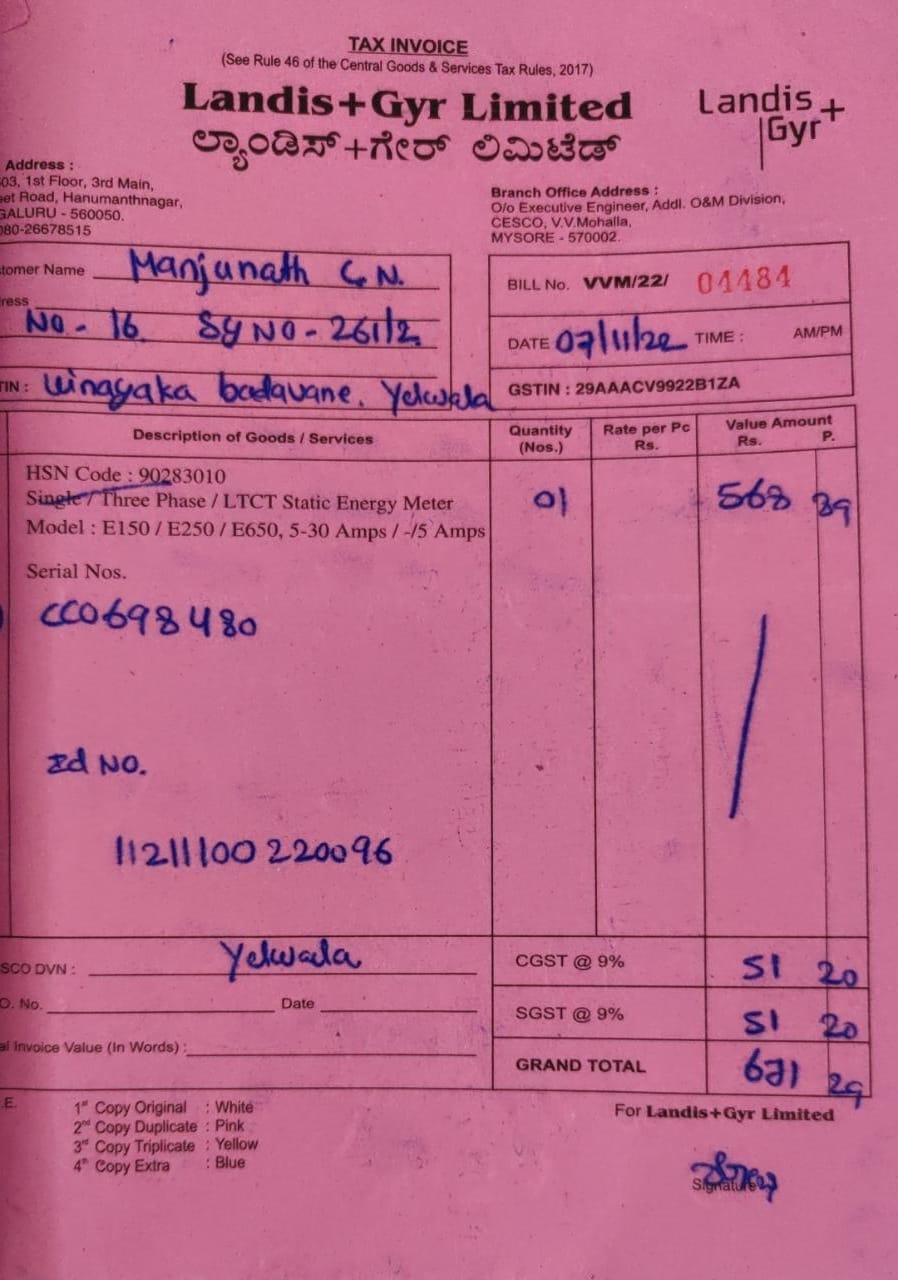 TAX INVOICE
(See Rule 46 of the Central Goods & Services Tax Rules, 2017)
Landis+Gyr Limited
ಲ್ಯಾಂಡಿಸ್+ಗೇರ್ ಲಿಮಿಟೆಡ್
Landis+
Gyr
Address :
03, 1st Floor, 3rd Main,
et Road, Hanumanthnagar,
GALURU - 560050.
080-26678515
Branch Office Address :
O/o Executive Engineer, Addl. O&M Division,
CESCO, V.V.Mohalla,
MYSORE - 570002.
tomer Name Manjunath G N.
ress
NO - 16 Sy NO - 261/2
TIN : Vinayaka badavane. Yelwala
BILL No. VVM/22/ 04484
DATE 07/11/22 TIME : AM/PM
GSTIN : 29AAACV9922B1ZA
Description of Goods / Services Quantity (Nos.) Rate per Pc Rs. Value Amount Rs. P.
HSN Code : 90283010
Single / Three Phase / LTCT Static Energy Meter 01 568 39
Model : E150 / E250 / E650, 5-30 Amps / -/5 Amps
Serial Nos.
CC0698480
Id NO.
11211100220096
SCO DVN : Yelwala
O. No. Date
al Invoice Value (In Words) :
CGST @ 9% 51 20
SGST @ 9% 51 20
GRAND TOTAL 671 29
E.
1st Copy Original : White
2nd Copy Duplicate : Pink
3rd Copy Triplicate : Yellow
4th Copy Extra : Blue
For Landis+Gyr Limited
Signature